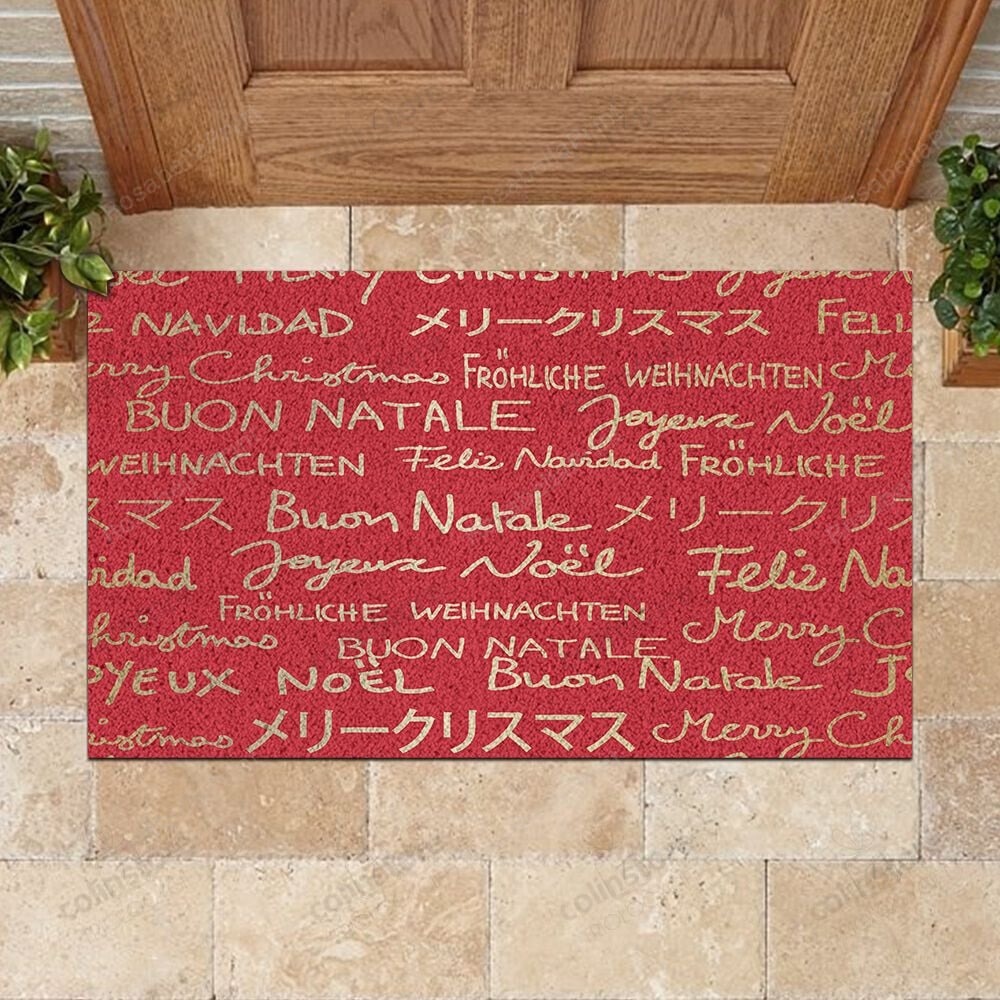 MERRY CHRISTMAS Joyeux
NAVIDAD メリークリスマス FELI
rry Christmas FRÖHLICHE WEIHNACHTEN Me
BUON NATALE Joyeux Noël
WEIHNACHTEN Feliz Navidad FRÖHLICHE
スマス Buon Natale メリークリス
vidad Joyeux Noël Feliz Na
FRÖHLICHE WEIHNACHTEN
hristmas BUON NATALE Merry C
OYEUX NOËL Buon Natale J
istmas メリークリスマス Merry Ch